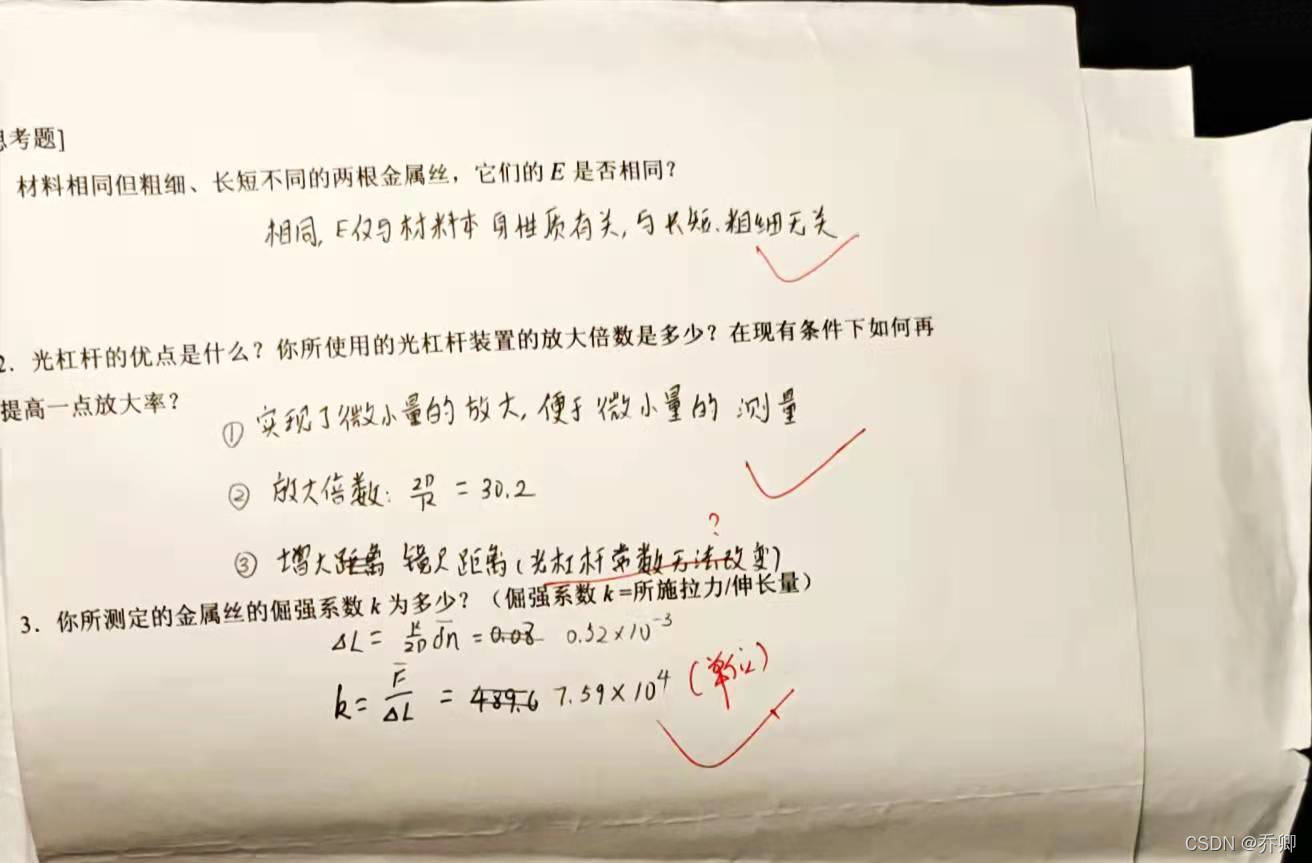 思考题]
材料相同但粗细、长短不同的两根金属丝，它们的 E 是否相同？
相同, E仅与材料本身性质有关, 与长短、粗细无关
2. 光杠杆的优点是什么？你所使用的光杠杆装置的放大倍数是多少？在现有条件下如何再
提高一点放大率？
① 实现了微小量的放大, 便于微小量的 测量
② 放大倍数: 2D/K = 30.2
?
③ 增大距离 镜尺距离 (光杠杆常数无法改变)
3. 你所测定的金属丝的倔强系数 k 为多少？（倔强系数 k=所施拉力/伸长量）
ΔL = K/2D dn = 0.08 0.32×10⁻³
k = F/ΔL = 489.6 7.59×10⁴ (单位)
CSDN @乔卿